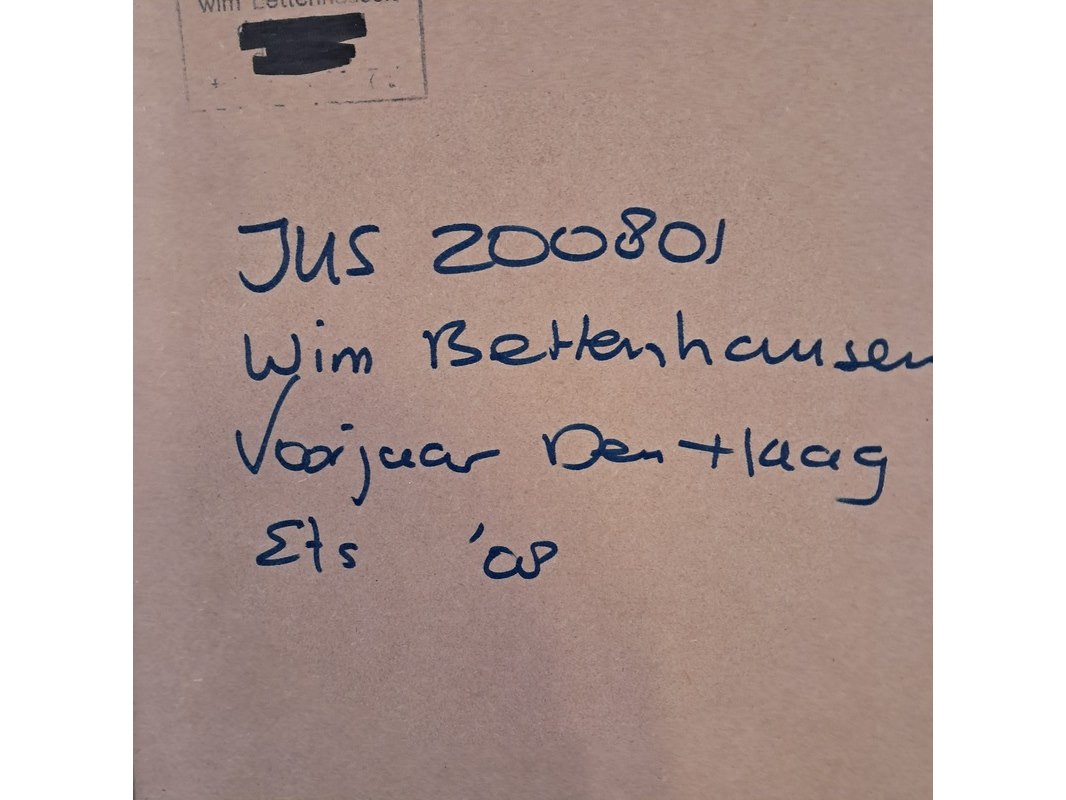 Wim Bettenhausen
JUS 200801
Wim Bettenhausen
Voorjaar Den Haag
Ets '08